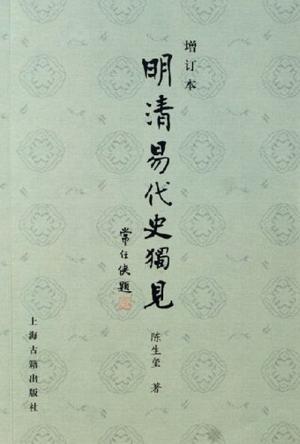 增订本
明清易代史獨見
常任侠题
陈生玺 著
上海古籍出版社